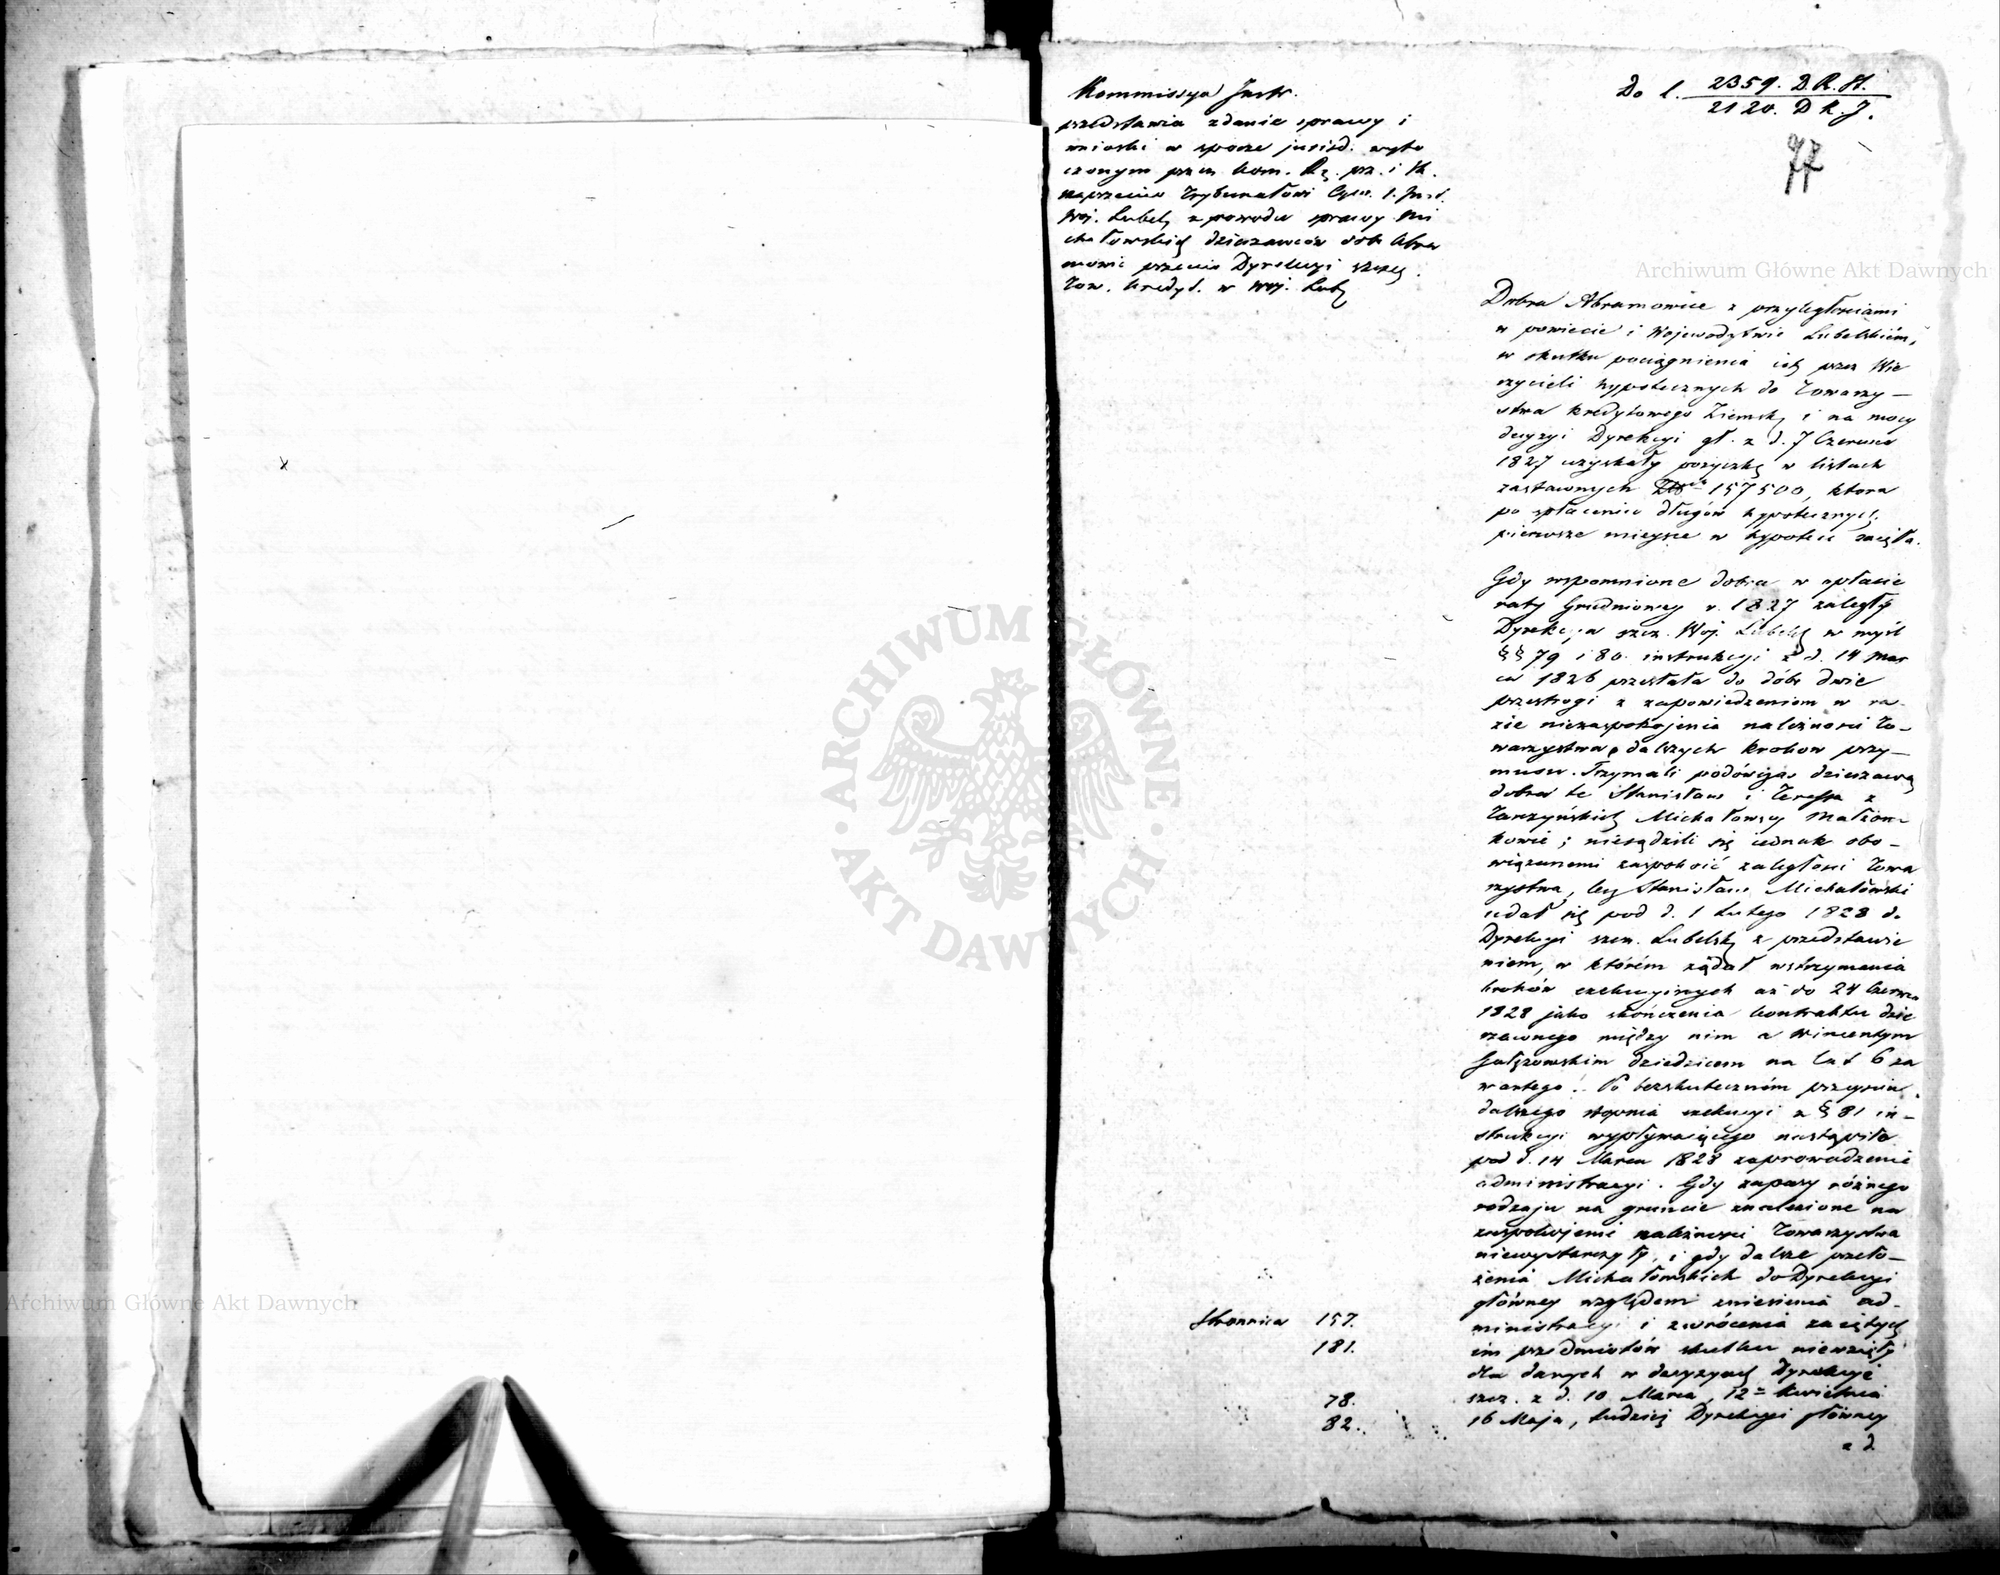 Kommissya Instr.
przedstawia zdanie sprawy i
wnioski w sporze jurisd. wyto
czonym przez kom. Rz. prz. i Sk.
naprzeciw Trybunałowi Cyw. 1. Inst.
Woj. Lubel. z powodu sprawy Mi
chałowskich dzierzawców dóbr Abra
mowic przeciw Dyrekcyi szczeg.
Tow. kredyt. w Woj. Lub.
Do l. 2359. D.R.St.
2120. D K. J.
77
Dobra Abramowice z przyległosciami
w powiecie i Wojewodztwie Lubelskiém,
w skutku pociągnienia ich przez Wie
rzycieli hypotecznych do Towarzy—
stwa kredytowego Ziemsk. i na mocy
decyzyi Dyrekcyi gł. z d. 7 Czerwca
1827 uzyskały pozyczkę w listach
zastawnych 157500, ktora
po spłaceniu długów hypotecznych
pierwsze mieysce w hypotece zaięła.
Gdy wspomnione dobra w opłacie
raty Grudniowey r. 1827 zaległy
Dyrekcya szcz. Woj. Lubelsk. w myśl
§§ 79 i 80. instrukcyi z d. 14 Mar
ca 1826 przesłała do dóbr dwie
przestrogi z zapowiedzeniem w ra-
zie niezaspokojenia nalezności To-
warzystwa, dalszych krokow przy—
musu. Trzymali podówczas dzierzawą
dobra te Stanisław i Teressa z
Tarzyńskich Michałowscy Małżon-
kowie; niesądzili się iednak obo-
wiązanemi zaspokoić zaległosci Towa
rzystwa, lecz Stanisław Michałowski
udał się pod d. 1 Lutego 1828 do
Dyrekcyi szcz. Lubelsk. z przedstawie
niem, w którém żądał wstrzymania
kroków exekucyinych aż do 24 Czerwca
1828 jako skończenia kontraktu dzie
rzawnego między nim a Wincentym
dziedzicem na lat 6 za
wartego. Po bezskuteczném przeysciu
dalszego stopnia exekucyi z § 81 in-
strukcyi wypływaiącego nastąpiło
pod d. 14 Marca 1828 zaprowadzenie
administracyi. Gdy zapasy róznego
rodzaju na gruncie znalezione na
zaspokojenie nalezności Towarzystwa
niewystarczyły, i gdy dalsze przeło-
żenia Michałowskich do Dyrekcyi
główney względem zniesienia ad-
ministracyi i zwrócenia zaiętych
im przedmiotów skutku niewzięły
dla danych w decyzyach Dyrekcyi
szcz. z d. 10 Marca, 12 Kwietnia
16 Maja, tudzież Dyrekcyi główney
z d.
Stronnica 157.
181.
78.
82.
Archiwum Główne Akt Dawnych
Archiwum Główne Akt Dawnych
ARCHIWUM GŁÓWNE · AKT DAWNYCH ·